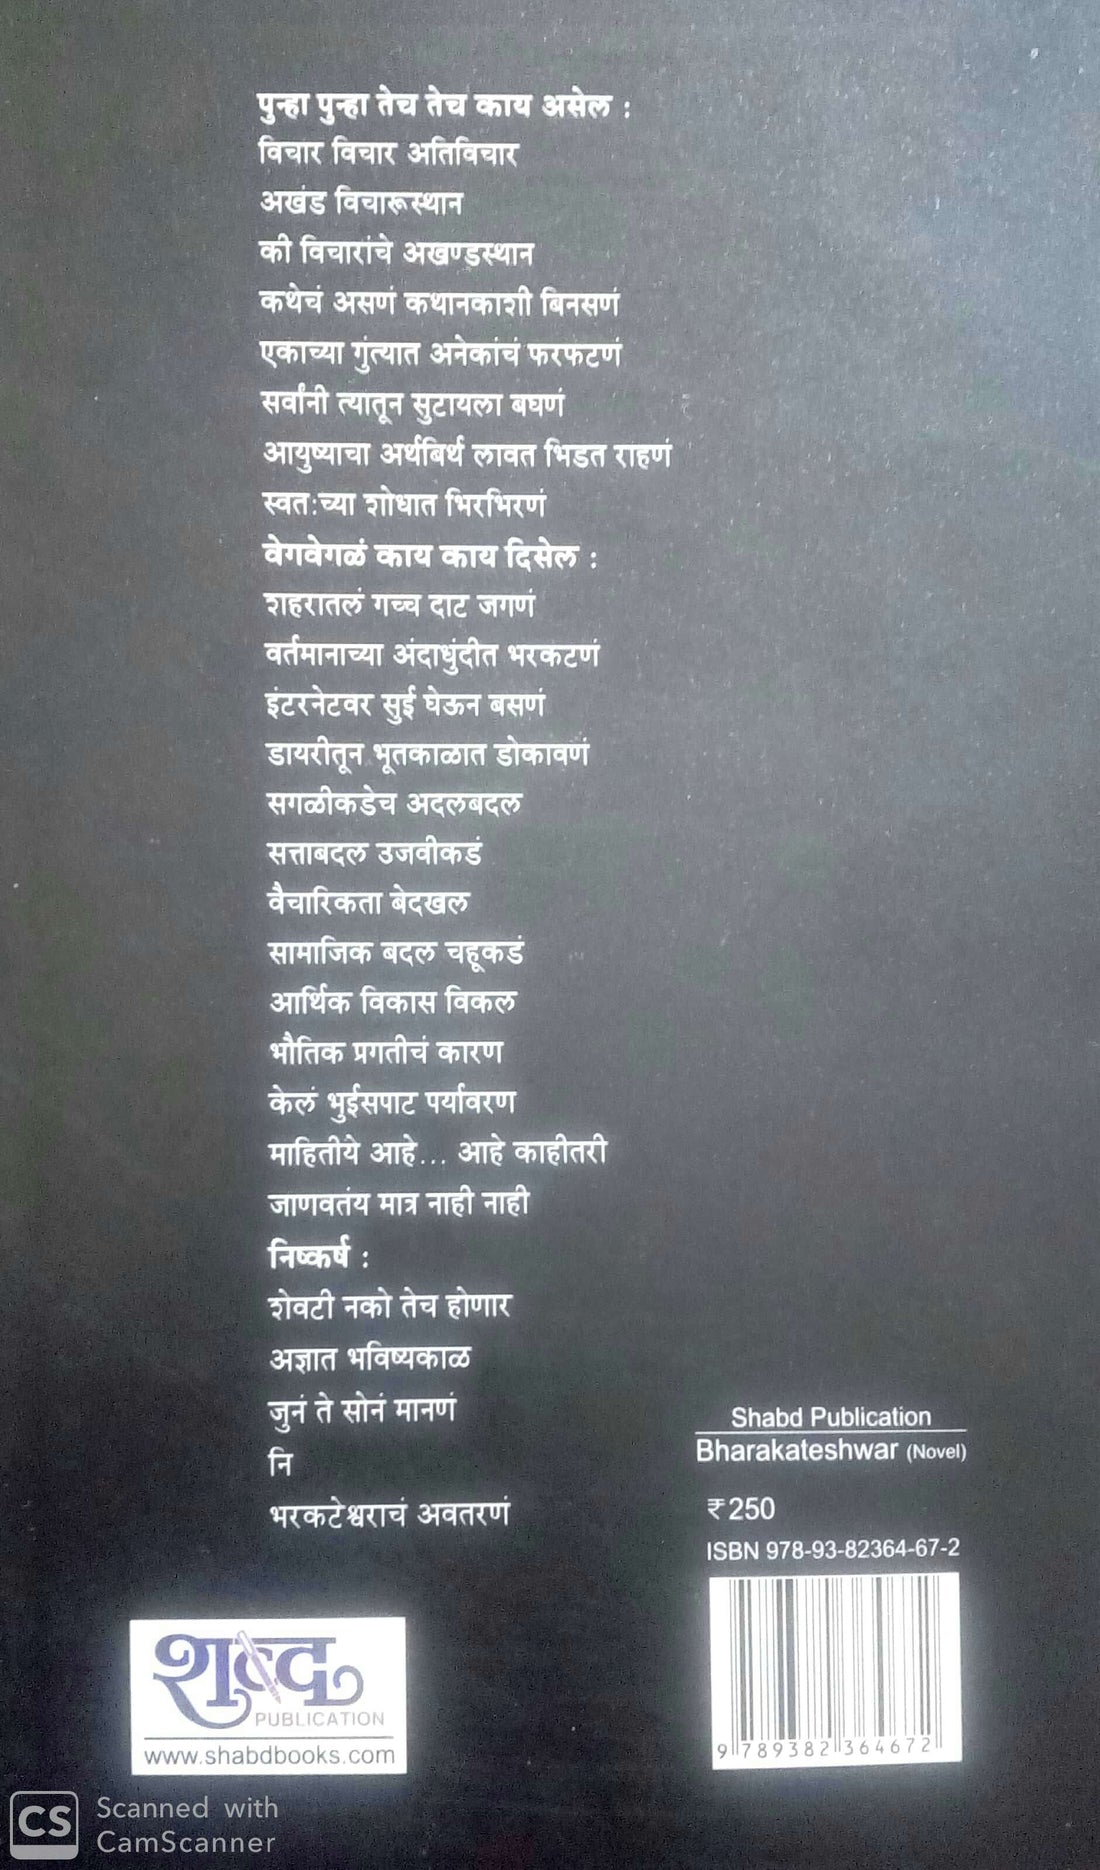 पुन्हा पुन्हा तेच तेच काय असेल :
विचार विचार अतिविचार
अखंड विचारूस्थान
की विचारांचे अखण्डस्थान
कथेचं असणं कथानकाशी बिनसणं
एकाच्या गुंत्यात अनेकांचं फरफटणं
सर्वांनी त्यातून सुटायला बघणं
आयुष्याचा अर्थबिर्थ लावत भिडत राहणं
स्वत:च्या शोधात भिरभिरणं
वेगवेगळं काय काय दिसेल :
शहरातलं गच्च दाट जगणं
वर्तमानाच्या अंदाधुंदीत भरकटणं
इंटरनेटवर सुई घेऊन बसणं
डायरीतून भूतकाळात डोकावणं
सगळीकडेच अदलबदल
सत्ताबदल उजवीकडं
वैचारिकता बेदखल
सामाजिक बदल चहूकडं
आर्थिक विकास विकल
भौतिक प्रगतीचं कारण
केलं भुईसपाट पर्यावरण
माहितीये आहे... आहे काहीतरी
जाणवतंय मात्र नाही नाही
निष्कर्ष :
शेवटी नको तेच होणार
अज्ञात भविष्यकाळ
जुनं ते सोनं मानणं
नि
भरकटेश्वराचं अवतरणं
Shabd Publication
Bharakateshwar (Novel)
₹ 250
ISBN 978-93-82364-67-2
9 789382 364672
शब्द
PUBLICATION
www.shabdbooks.com
CS Scanned with
CamScanner